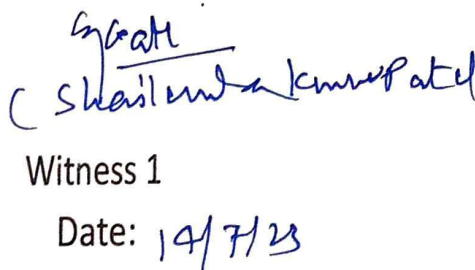 ( Shailendra Kumar Patel
Witness 1
Date: 14/7/23